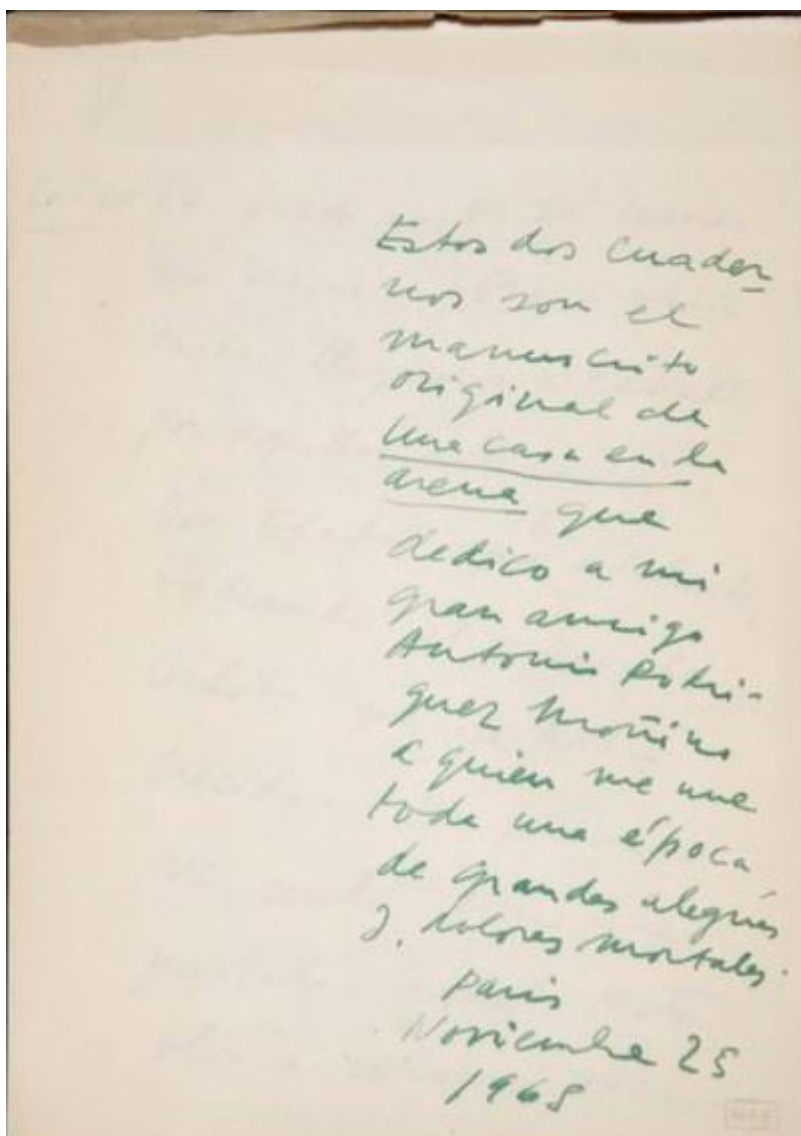 Estos dos cuader-
nos son el
manuscrito
original de
una casa en la
arena que
dedico a mi
gran amigo
Antonio Rodri-
guez Moñino
a quien me une
toda una época
de grandes alegrías
y dolores mortales.
Paris
Noviembre 25